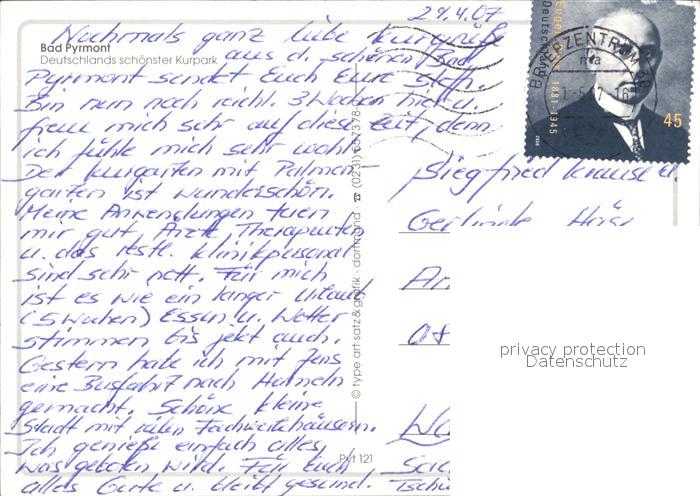 29.4.07
Nochmals ganz liebe Kurgrüße
Bad Pyrmont
Deutschlands schönster Kurpark
aus d. schönen Bad
Pyrmont sendet Euch Eure Steff.
Bin nun noch reichl. 3 Wochen hier u.
freue mich sehr auf diese Zeit, denn
ich fühle mich sehr wohl.
Der Kurgarten mit Palmen-
garten ist wunderschön.
Meine Anwendungen tuen
mir gut, Ärzte Therapeuten
u. das restl. Klinikpersonal
sind sehr nett. Für mich
ist es wie ein langer Urlaub
(5 Wochen) Essen u. Wetter
stimmen bis jetzt auch.
Gestern habe ich mit Jens
eine Busfahrt nach Hameln
gemacht. Schöne kleine
Stadt mit vielen Fachwerkhäusern.
Ich genieße einfach alles,
was geboten wird. Für Euch
alles Gute u. bleibt gesund.
© type art satz & grafik · dortmund · ☎ (0231)
Pyt 121
Deutschland
1881-1945
45
BRIEFZENTRUM
Siegfried Krause u.
Gerlinde
privacy protection
Datenschutz